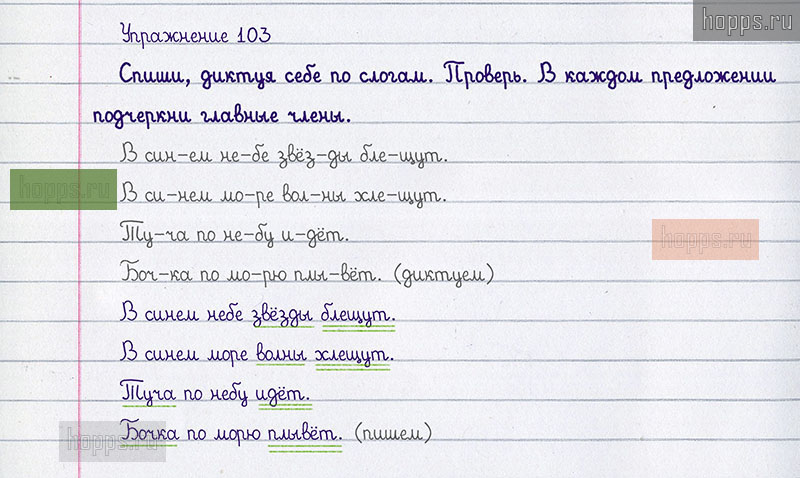 hopps.ru
Упражнение 103
Спиши, диктуя себе по слогам. Проверь. В каждом предложении
подчеркни главные члены.
В син-ем не-бе звёз-ды бле-щут.
hopps.ru
В си-нем мо-ре вол-ны хле-щут.
Ту-ча по не-бу и-дёт.
hopps.ru
Боч-ка по мо-рю плы-вёт. (диктуем)
В синем небе звёзды блещут.
В синем море волны хлещут.
Туча по небу идёт.
Бочка по морю плывёт. (пишем)
hopps.ru